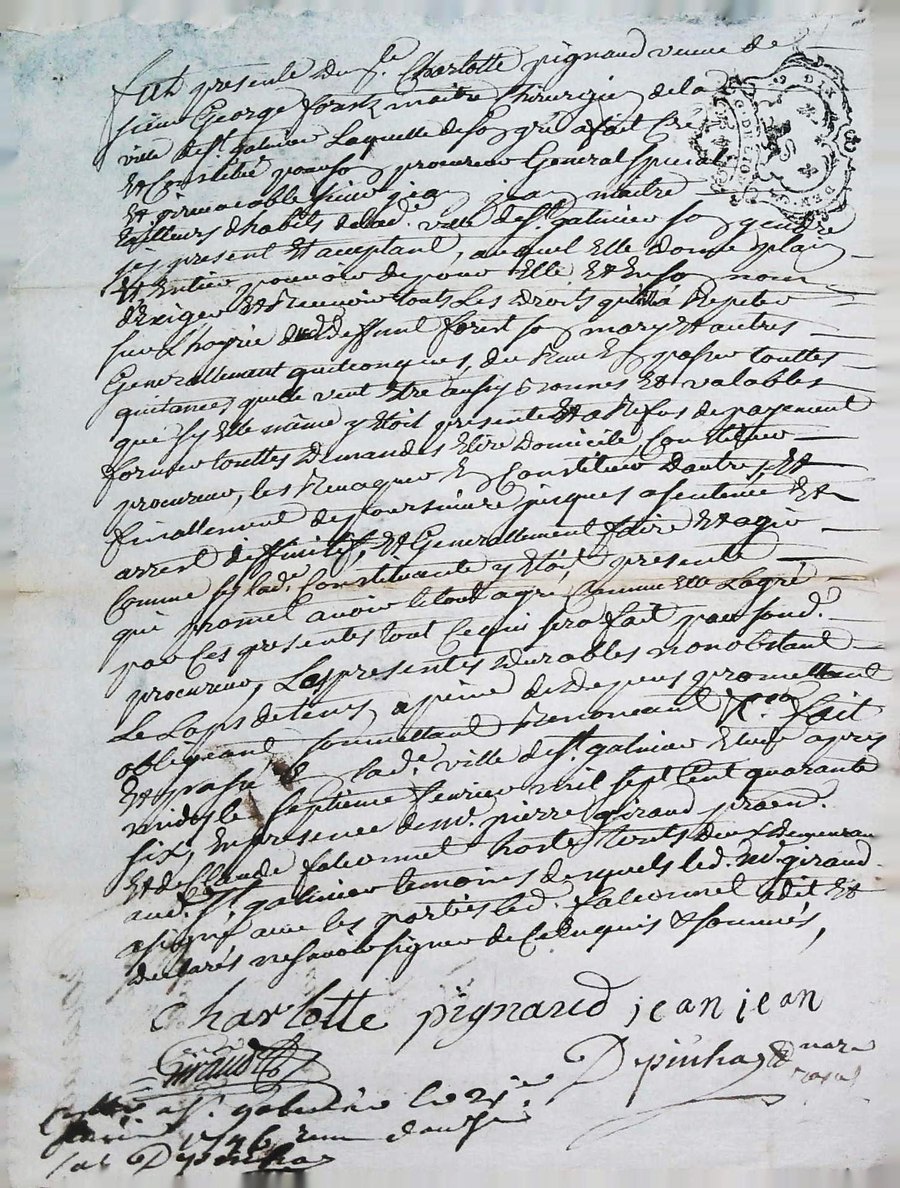 fut presente du.lle Charlotte pignaud veuve de
sieur George forest maitre Chirurgien de la
ville de St. galmier Laquelle de son gré a fait Cré
Et Constitué pour son procureur General special
Et irrevocable sieur jean jean maitre
tailleurs d'habits de lad.e ville de St. galmier son gendre
icy present Et acceptant, auquel Elle donne plain
Et Entier pouvoir de pour Elle Et En son nom
d'Exiger Et Recevoir touts Les Droits qu'illa Repeter
sur L'hoyrie dud. deffunt forest son mary Et autres
Generallement quelconques, du Reçu En passer touttes
quitances quelle veut Etre aussy bonnes Et valables
que sy Elle même y Etoit presente Et a Refus de payement
former touttes Demandes Elire Domicile, Constituer
procureur, les Revoquer En Constituer D'autres, Et
finallement de poursuivre jusques a sentence Et
arrest deffinitif, Et Generallement faire Et agir
Comme sy lad.e Constituante y Etoit presente
qui promet avoir le tout agré, Comme Elle L'agré
par Ces presentes tout Ce qui sera fait par sond.
procureur, Les presentes Durables nonobstant
Le Laps de tems, a peine de Depens promettant
obligeant soumettant Renonceant &.a fait
Et passé a lad.e ville de St. galmier Etude apres
midy le septieme fevrier mil sept Cent quarante
six, En presence de m.e pierre giraud praen.
Et de Claude falconnet hoste touts deux demeurant
aud. St. galmier temoins desquels led. m.e giraud
a signé avec les parties led. falconnet a dit Et
declarés ne savoir signer de Ce Enquis & sommés,
Charlotte pignaud jean jean
Giraud Depinhac
a St. galmier le 21.e
1746 reçu douze sols
Depinhac